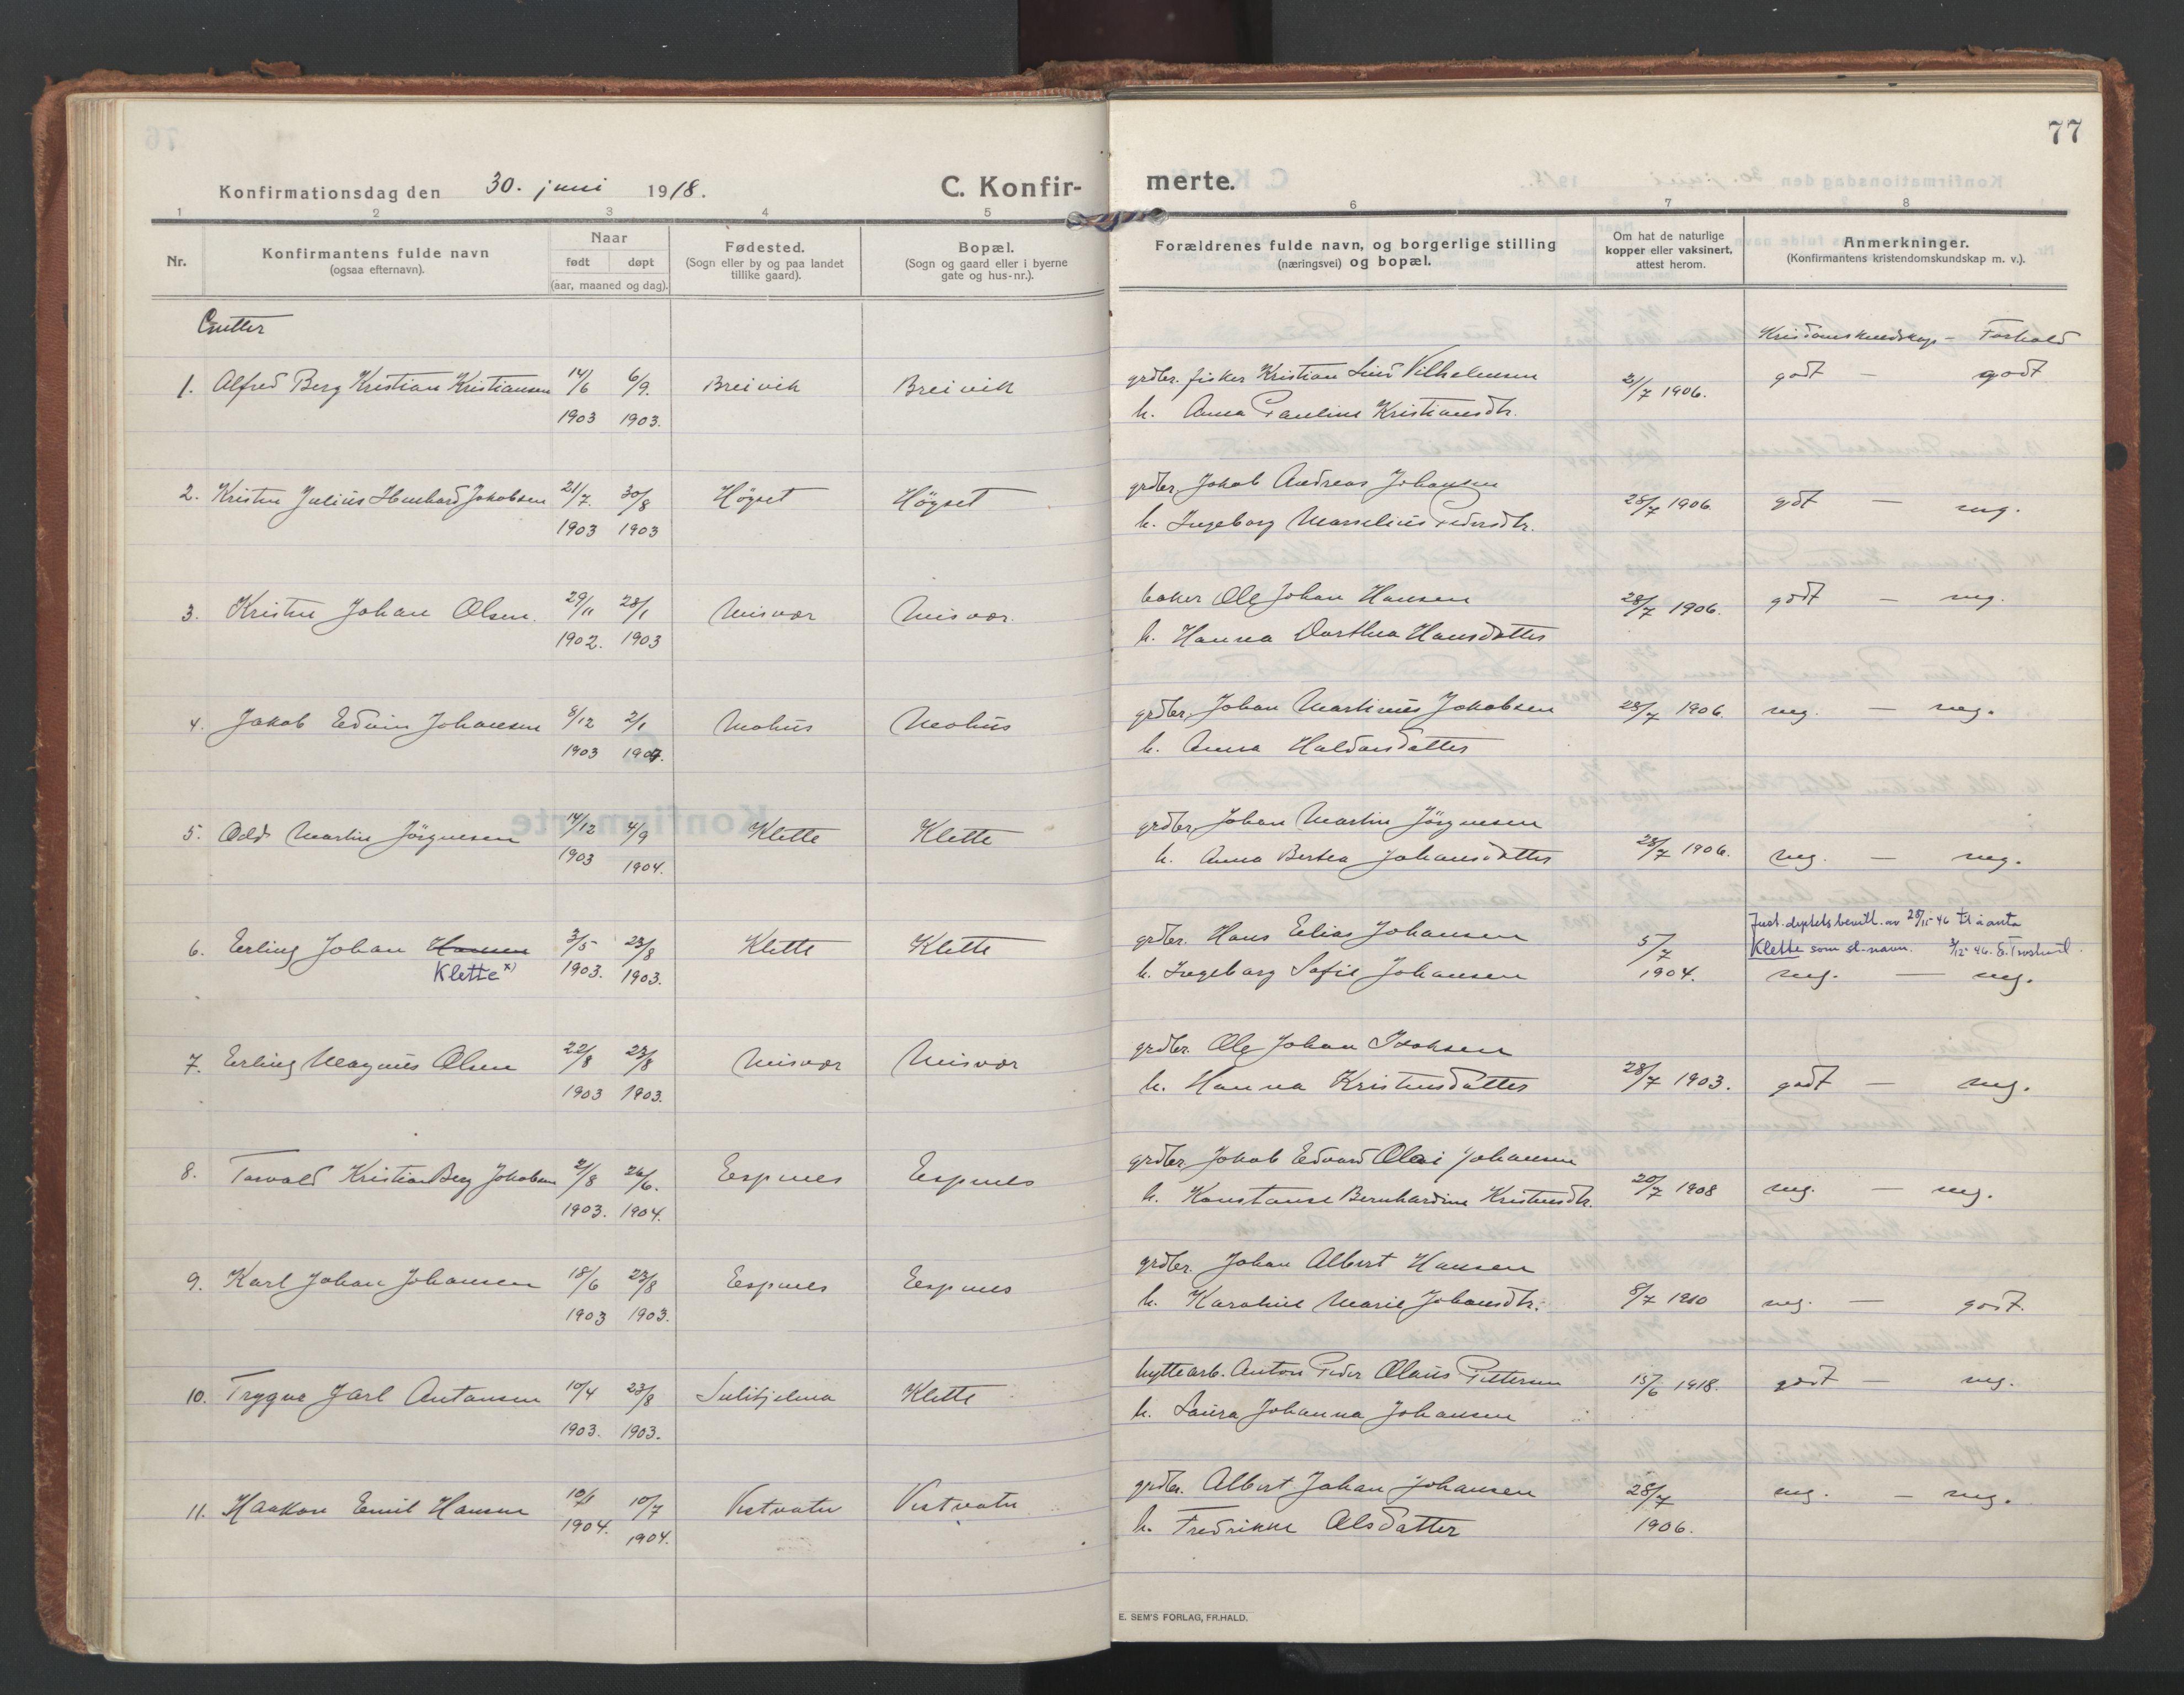 77
Konfirmationsdag den 30. juni 1918. C. Konfir- merte.
1 2 3 4 5 6 7 8
Nr. Konfirmantens fulde navn (ogsaa efternavn). Naar født døpt (aar, maaned og dag). Fødested. (Sogn eller by og paa landet tillike gaard). Bopæl. (Sogn og gaard eller i byerne gate og hus-nr.). Forældrenes fulde navn, og borgerlige stilling (næringsvei) og bopæl. Om hat de naturlige kopper eller vaksinert, attest herom. Anmerkninger. (Konfirmantens kristendomskundskap m. v.).
Gutter
Forhold
1. Alfred Berg Kristian Kristiansen 14/6 6/9. Breivik Breivik grdbr. fisker Kristian Vilhelmsen 21/7 1906. godt — godt
1903 1903. h. Anna Pauline Kristiansdtr.
2. Kristen Julius Jakobsen 21/7. 30/8 Høgset Høgset grdbr. Jakob Andreas Johansen 28/7 1906. gdt — mg.
1903 1903 h. Ingeborg Marselius Pedersdtr.
3. Kristen Johan Olsen. 29/11 28/1 Misvær Misvær. baker Ole Johan Hansen 28/7 1906. godt — mg.
1902. 1903 h. Hanna Dorthea Hansdatter
4. Jakob Edvin Johansen 8/12 2/1 Mohus Mohus grdbr. Johan Martinus Jakobsen 28/7 1906. mg. — mg.
1903 1904. h. Anna Haldorsdatter
5. Odd Martin Jörgensen 14/12 4/9 Klette Klette grdbr. Johan Martin Jörgensen
1903 1904. h. Anna Bertea Johansdatter 28/7 1906. mg. — mg.
6. Erling Johan Hansen 3/5 23/8 Klette Klette grdbr. Hans Elias Johansen 5/7 Just.deptets bevill. av 28/11-46 til å anta
Klette x) 1903. 1903. h. Ingeborg Sofie Johansen 1904. Klette som sl.-navn. 3/12-46.
mg. — mg.
7. Erling Magnus Olsen 22/8 23/8 Misvær Misvær grdbr. Ole Johan Isaksen
1903 1903. h. Hanna Kristensdatter 28/7 1903. godt — mg.
8. Torvald Kristian Berg Jakobsen 2/8 26/6. Espnes Espnes grdbr. Jakob Edvard Olai Johansen
1903. 1904. h. Konstanse Bernhardine Kristensdtr. 20/7 1908 mg. — mg.
9. Karl Johan Johansen 18/6 23/8 Espnes Espnes grdbr. Johan Albert Hansen
1903 1903. h. Karoline Marie Johansdtr. 8/7 1910 mg. — godt.
10. Trygve Jarl Antonsen 10/4 23/8 Sulitjelma Klette hyttearb. Anton Peder Olaus Pettersen 15/6 1918. godt — mg.
1903. 1903. h. Laura Johanna Johansen
11. Haakon Emil Hansen 10/1 10/7 Vestvatn Vestvatn grdbr. Albert Johan Johansen 28/7 mg. — mg.
1904. 1904. h. Fredrikke Olsdatter 1906.
E. SEM'S FORLAG, FR.HALD.